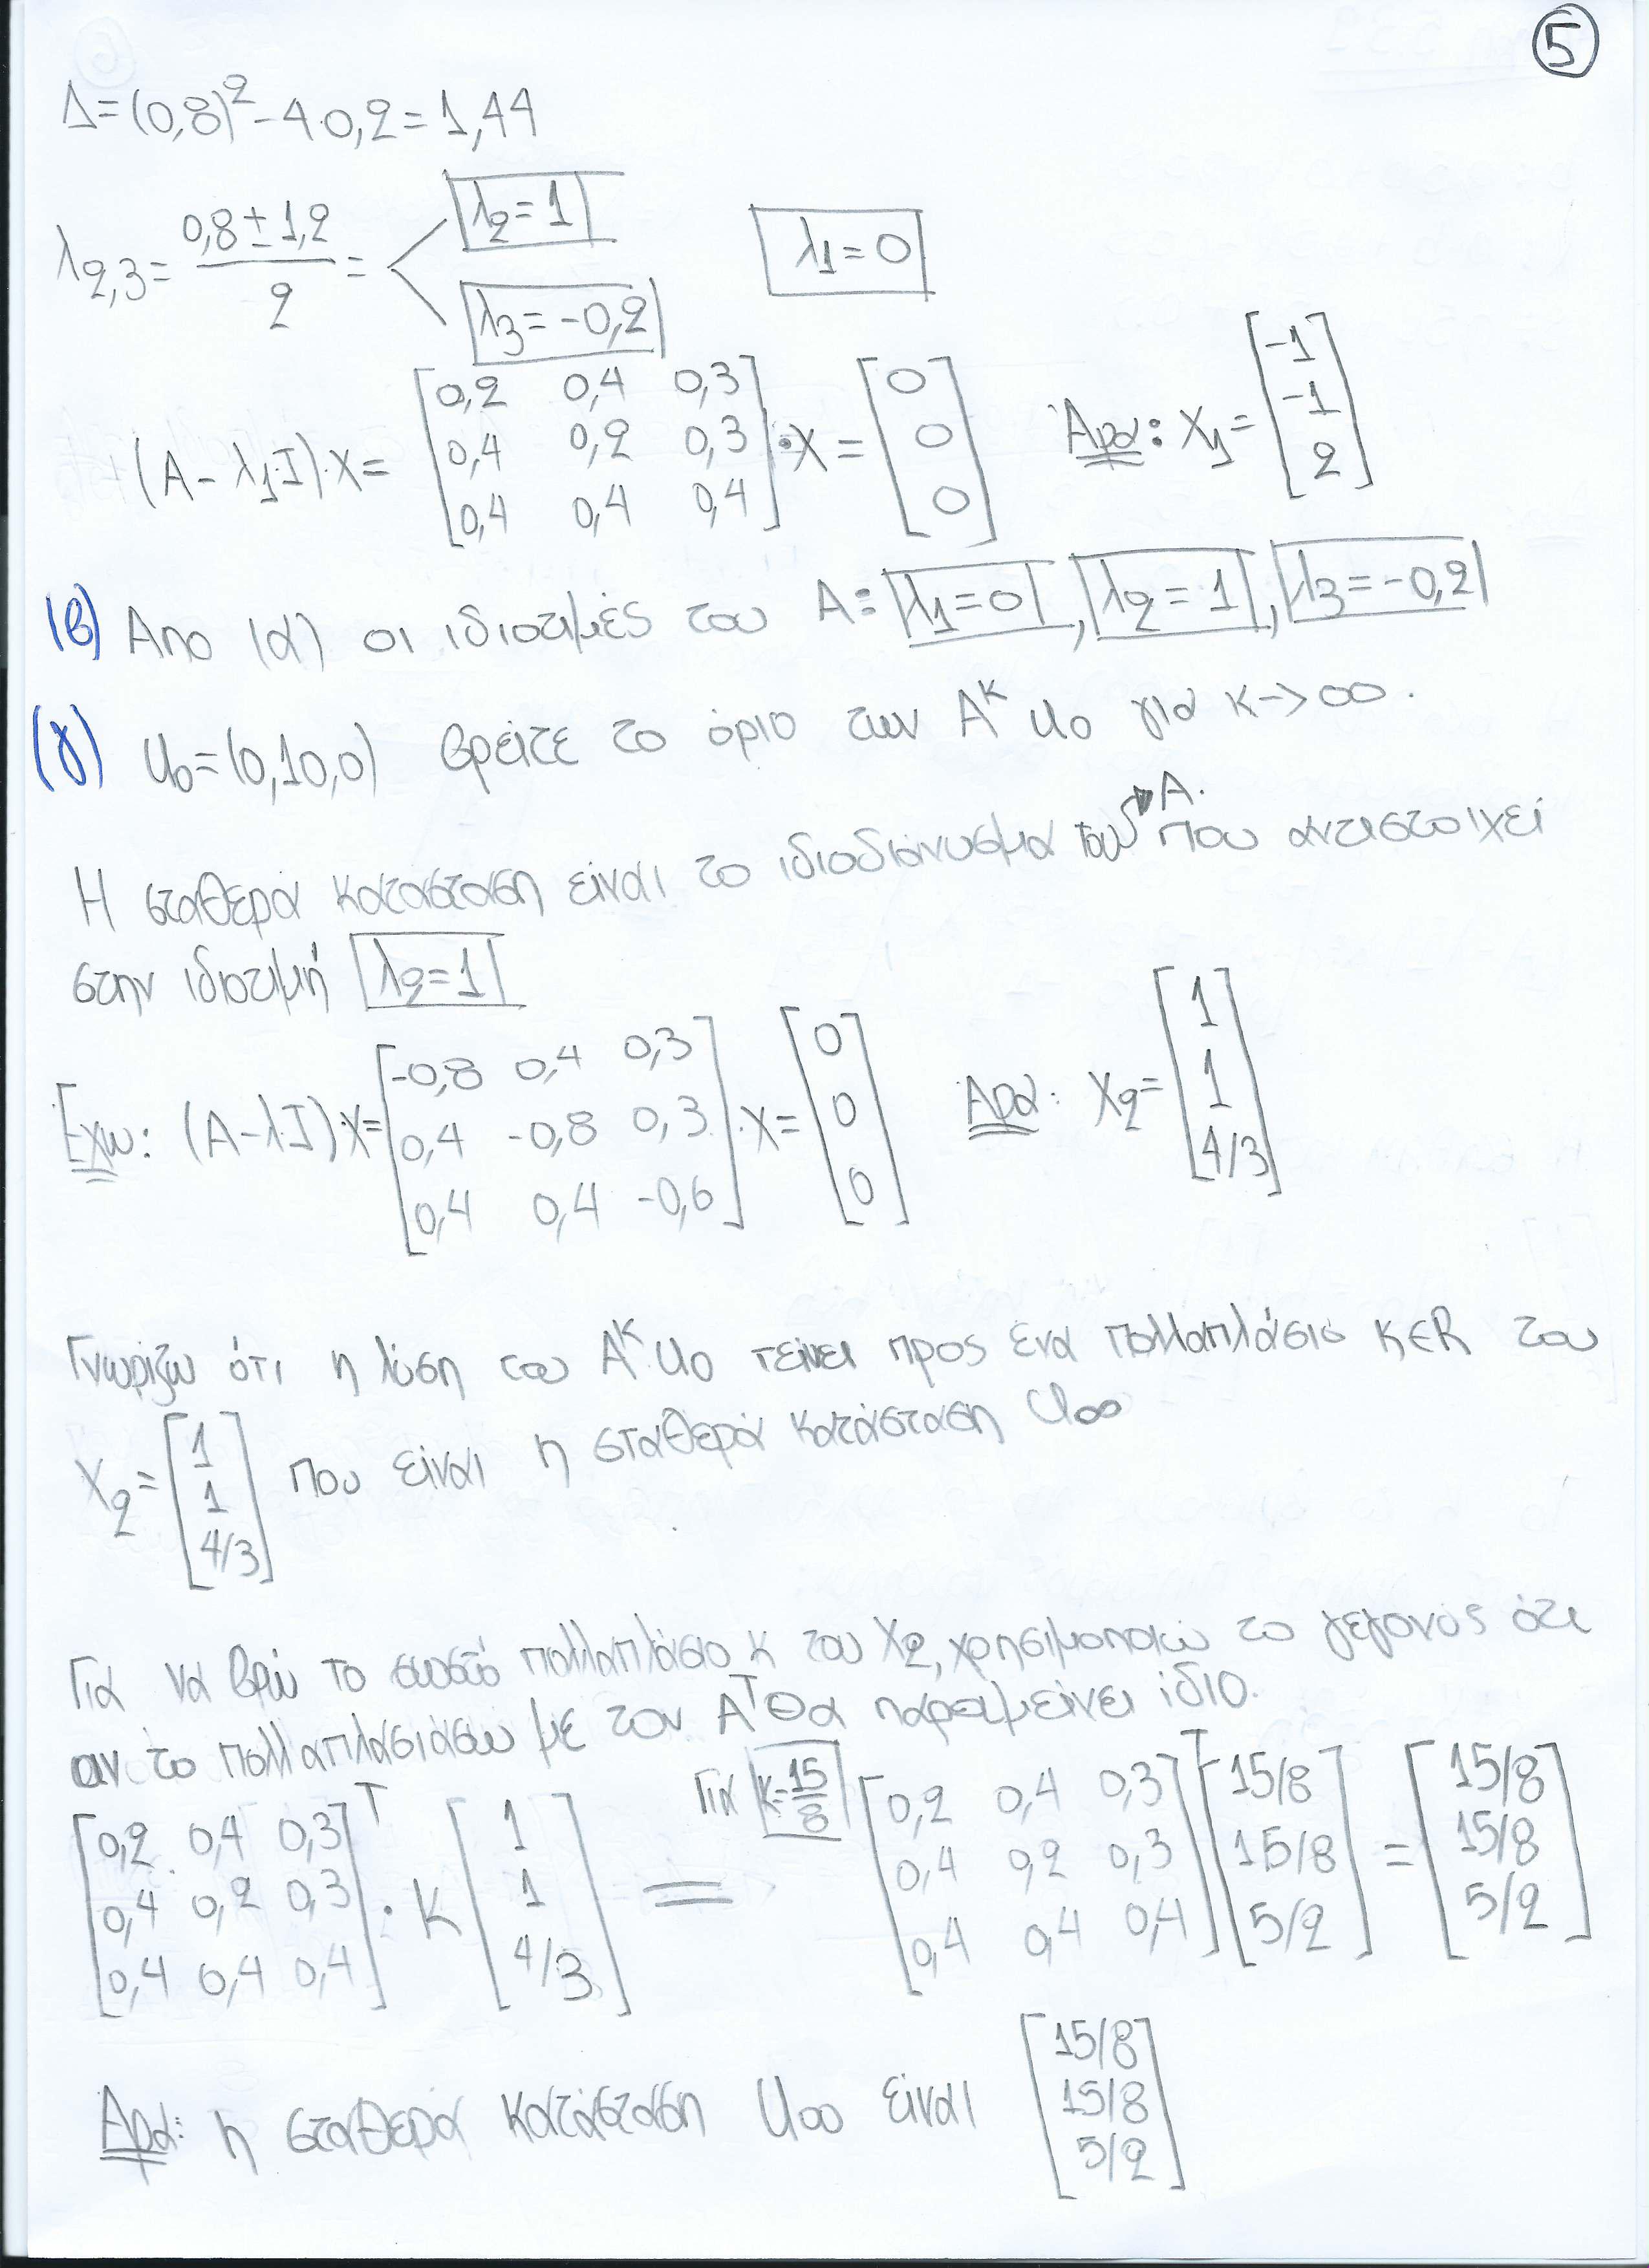 5
Δ=(0,8)²-4·0,2=1,44
λ2,3= (0,8±1,2)/2 = λ2=1 λ1=0
λ3=-0,2
(A-λ1I)·X= [0,2 0,4 0,3] ·X = [0] Άρα: X1= [-1]
[0,4 0,2 0,3] [0] [-1]
[0,4 0,4 0,4] [0] [2]
(β) Απο (α) οι ιδιοτιμές του A: λ1=0, λ2=1, λ3=-0,2
(γ) U0=(0,10,0) βρείτε το όριο των A^K U0 για K->∞.
Η σταθερά κατάσταση είναι το ιδιοδιάνυσμα του A. που αντιστοιχεί
στην ιδιοτιμή λ2=1
Έχω: (A-λI)·X= [-0,8 0,4 0,3] ·X= [0] Άρα: X2= [1]
[0,4 -0,8 0,3] [0] [1]
[0,4 0,4 -0,6] [0] [4/3]
Γνωρίζω ότι η λύση του A^K U0 τείνει προς ένα πολλαπλάσιο K∈R του
X2= [1] που είναι η σταθερά κατάσταση U∞
[1]
[4/3]
Για να βρω το σωστό πολλαπλάσιο K του X2, χρησιμοποιώ το γεγονός ότι
αν το πολλαπλασιάσω με τον A^T θα παραμείνει ίδιο.
[0,2 0,4 0,3]^T · K [1] = Για K=15/8 [0,2 0,4 0,3]^T [15/8] = [15/8]
[0,4 0,2 0,3] [1] [0,4 0,2 0,3] [15/8] [15/8]
[0,4 0,4 0,4] [4/3] [0,4 0,4 0,4] [5/2] [5/2]
Άρα: η σταθερά κατάσταση U∞ είναι [15/8]
[15/8]
[5/2]